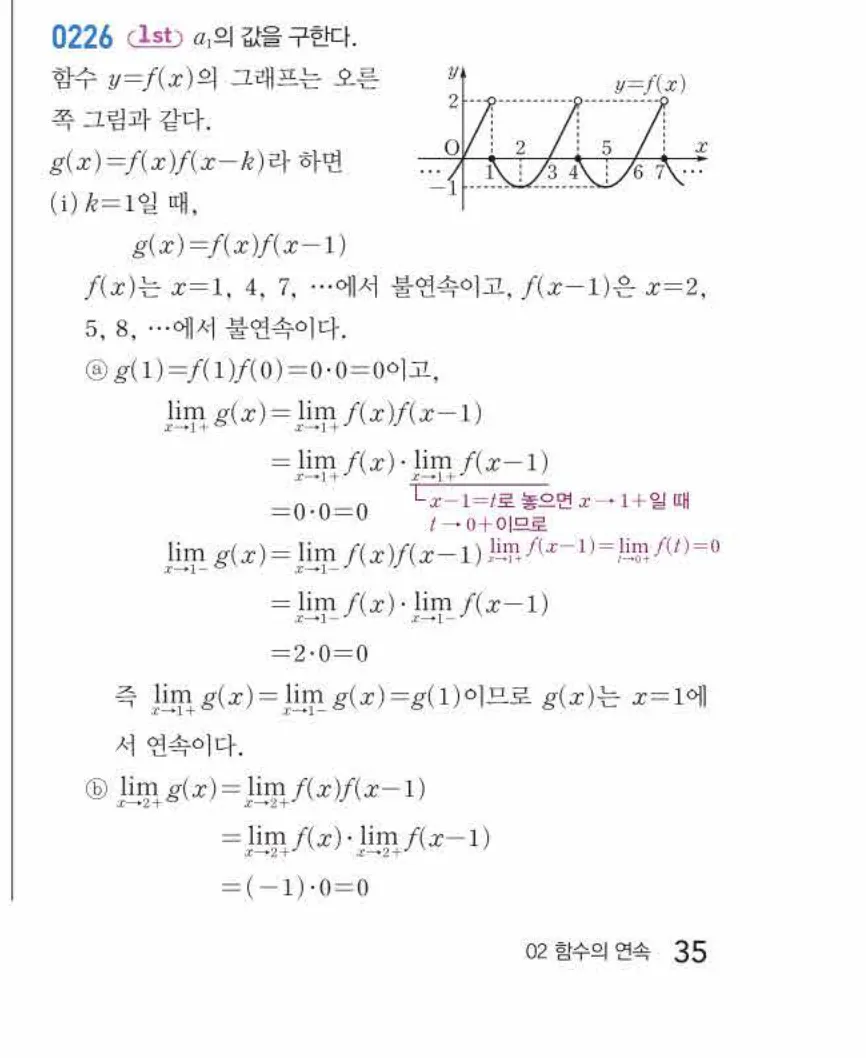 0226 1st a₁의 값을 구한다.
함수 y=f(x)의 그래프는 오른
쪽 그림과 같다.
g(x)=f(x)f(x-k)라 하면
(i) k=1일 때,
y
2
y=f(x)
O
2
5
x
…
1
3
4
6
7
…
-1
g(x)=f(x)f(x-1)
f(x)는 x=1, 4, 7, …에서 불연속이고, f(x-1)은 x=2,
5, 8, …에서 불연속이다.
ⓐ g(1)=f(1)f(0)=0·0=0이고,
lim x→1+ g(x)=lim x→1+ f(x)f(x-1)
=lim x→1+ f(x)·lim x→1+ f(x-1)
=0·0=0
x-1=t로 놓으면 x→1+일 때
t→0+이므로
lim x→1+ f(x-1)=lim t→0+ f(t)=0
lim x→1- g(x)=lim x→1- f(x)f(x-1)
=lim x→1- f(x)·lim x→1- f(x-1)
=2·0=0
즉 lim x→1+ g(x)=lim x→1- g(x)=g(1)이므로 g(x)는 x=1에
서 연속이다.
ⓑ lim x→2+ g(x)=lim x→2+ f(x)f(x-1)
=lim x→2+ f(x)·lim x→2+ f(x-1)
=(-1)·0=0
02 함수의 연속 35